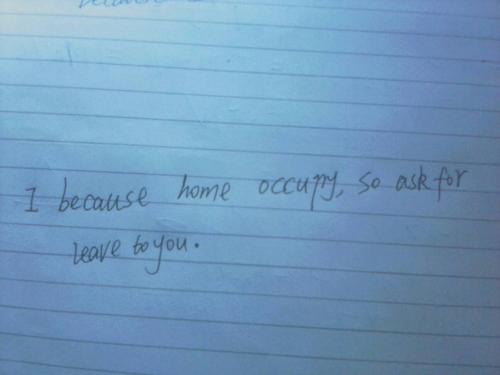 because
I because home occupy, so ask for
leave to you.